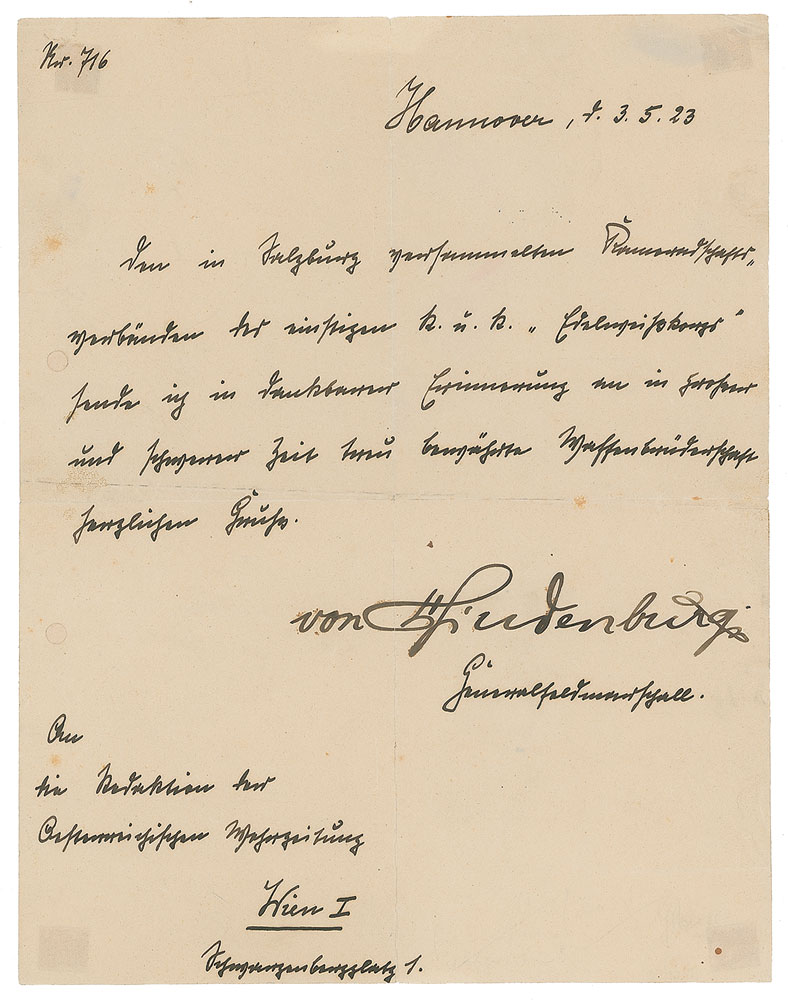 Nr. 716
Hannover, d. 3. 5. 23
Den in Salzburg versammelten Kameradschafts-
verbänden des einstigen k. u. k. „Edelweißkorps"
sende ich in dankbarer Erinnerung an in großer
und schwerer Zeit treu bewährte Waffenbrüderschaft
herzlichen Gruß.
von Hindenburg
Generalfeldmarschall.
An
die Redaktion der
Oesterreichischen Wehrzeitung
Wien I
Schwarzenbergplatz 1.